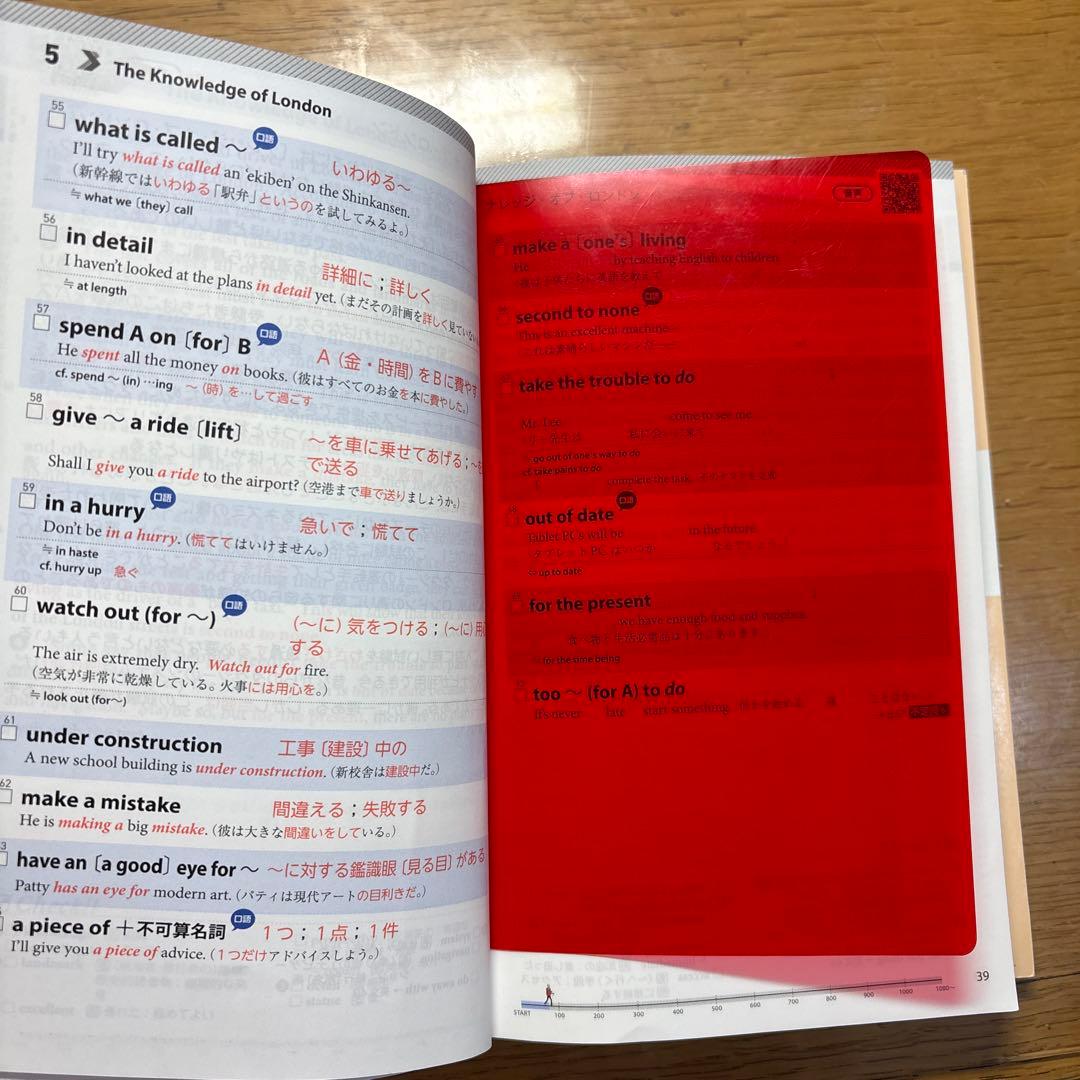 5 The Knowledge of London
55
what is called ～ 口語
いわゆる～
I'll try what is called an 'ekiben' on the Shinkansen.
(新幹線ではいわゆる「駅弁」というのを試してみるよ。)
≒ what we〔they〕call
56
in detail
詳細に；詳しく
I haven't looked at the plans in detail yet. (まだその計画を詳しく見ていない
≒ at length
57
spend A on〔for〕B 口語
A（金・時間）をBに費やす
He spent all the money on books. (彼はすべてのお金を本に費やした。)
cf. spend ～ (in) …ing ～（時）を…して過ごす
58
give ～ a ride〔lift〕
～を車に乗せてあげる；～を
で送る
Shall I give you a ride to the airport? (空港まで車で送りましょうか。)
59
in a hurry 口語
急いで；慌てて
Don't be in a hurry. (慌ててはいけません。)
≒ in haste
cf. hurry up 急ぐ
60
watch out (for ～) 口語
(～に) 気をつける；(～に) 用心
する
The air is extremely dry. Watch out for fire.
(空気が非常に乾燥している。火事には用心を。)
≒ look out (for～)
61
under construction
工事〔建設〕中の
A new school building is under construction. (新校舎は建設中だ。)
62
make a mistake
間違える；失敗する
He is making a big mistake. (彼は大きな間違いをしている。)
3
have an〔a good〕eye for ～
～に対する鑑識眼〔見る目〕がある
Patty has an eye for modern art. (パティは現代アートの目利きだ。)
a piece of ＋不可算名詞 口語
1つ；1点；1件
I'll give you a piece of advice. (1つだけアドバイスしよう。)
ナレッジ・オブ・ロン
音声
make a〔one's〕living
He by teaching English to children.
(彼は子供たちに英語を教えて
second to none 口語
This is an excellent machine
take the trouble to do
Mr. Lee come to see me
≒ go out of one's way to do
cf. take pains to do
complete the task.
out of date 口語
Tablet PCs will be in the future.
≒ up to date
for the present
we have enough food and supplies.
食べ物と生活必需品は十分にあります。
≒ for the time being
too ～ (for A) to do
It's never late start something.
39
START 100 200 300 400 500 600 700 800 900 1000 1080～